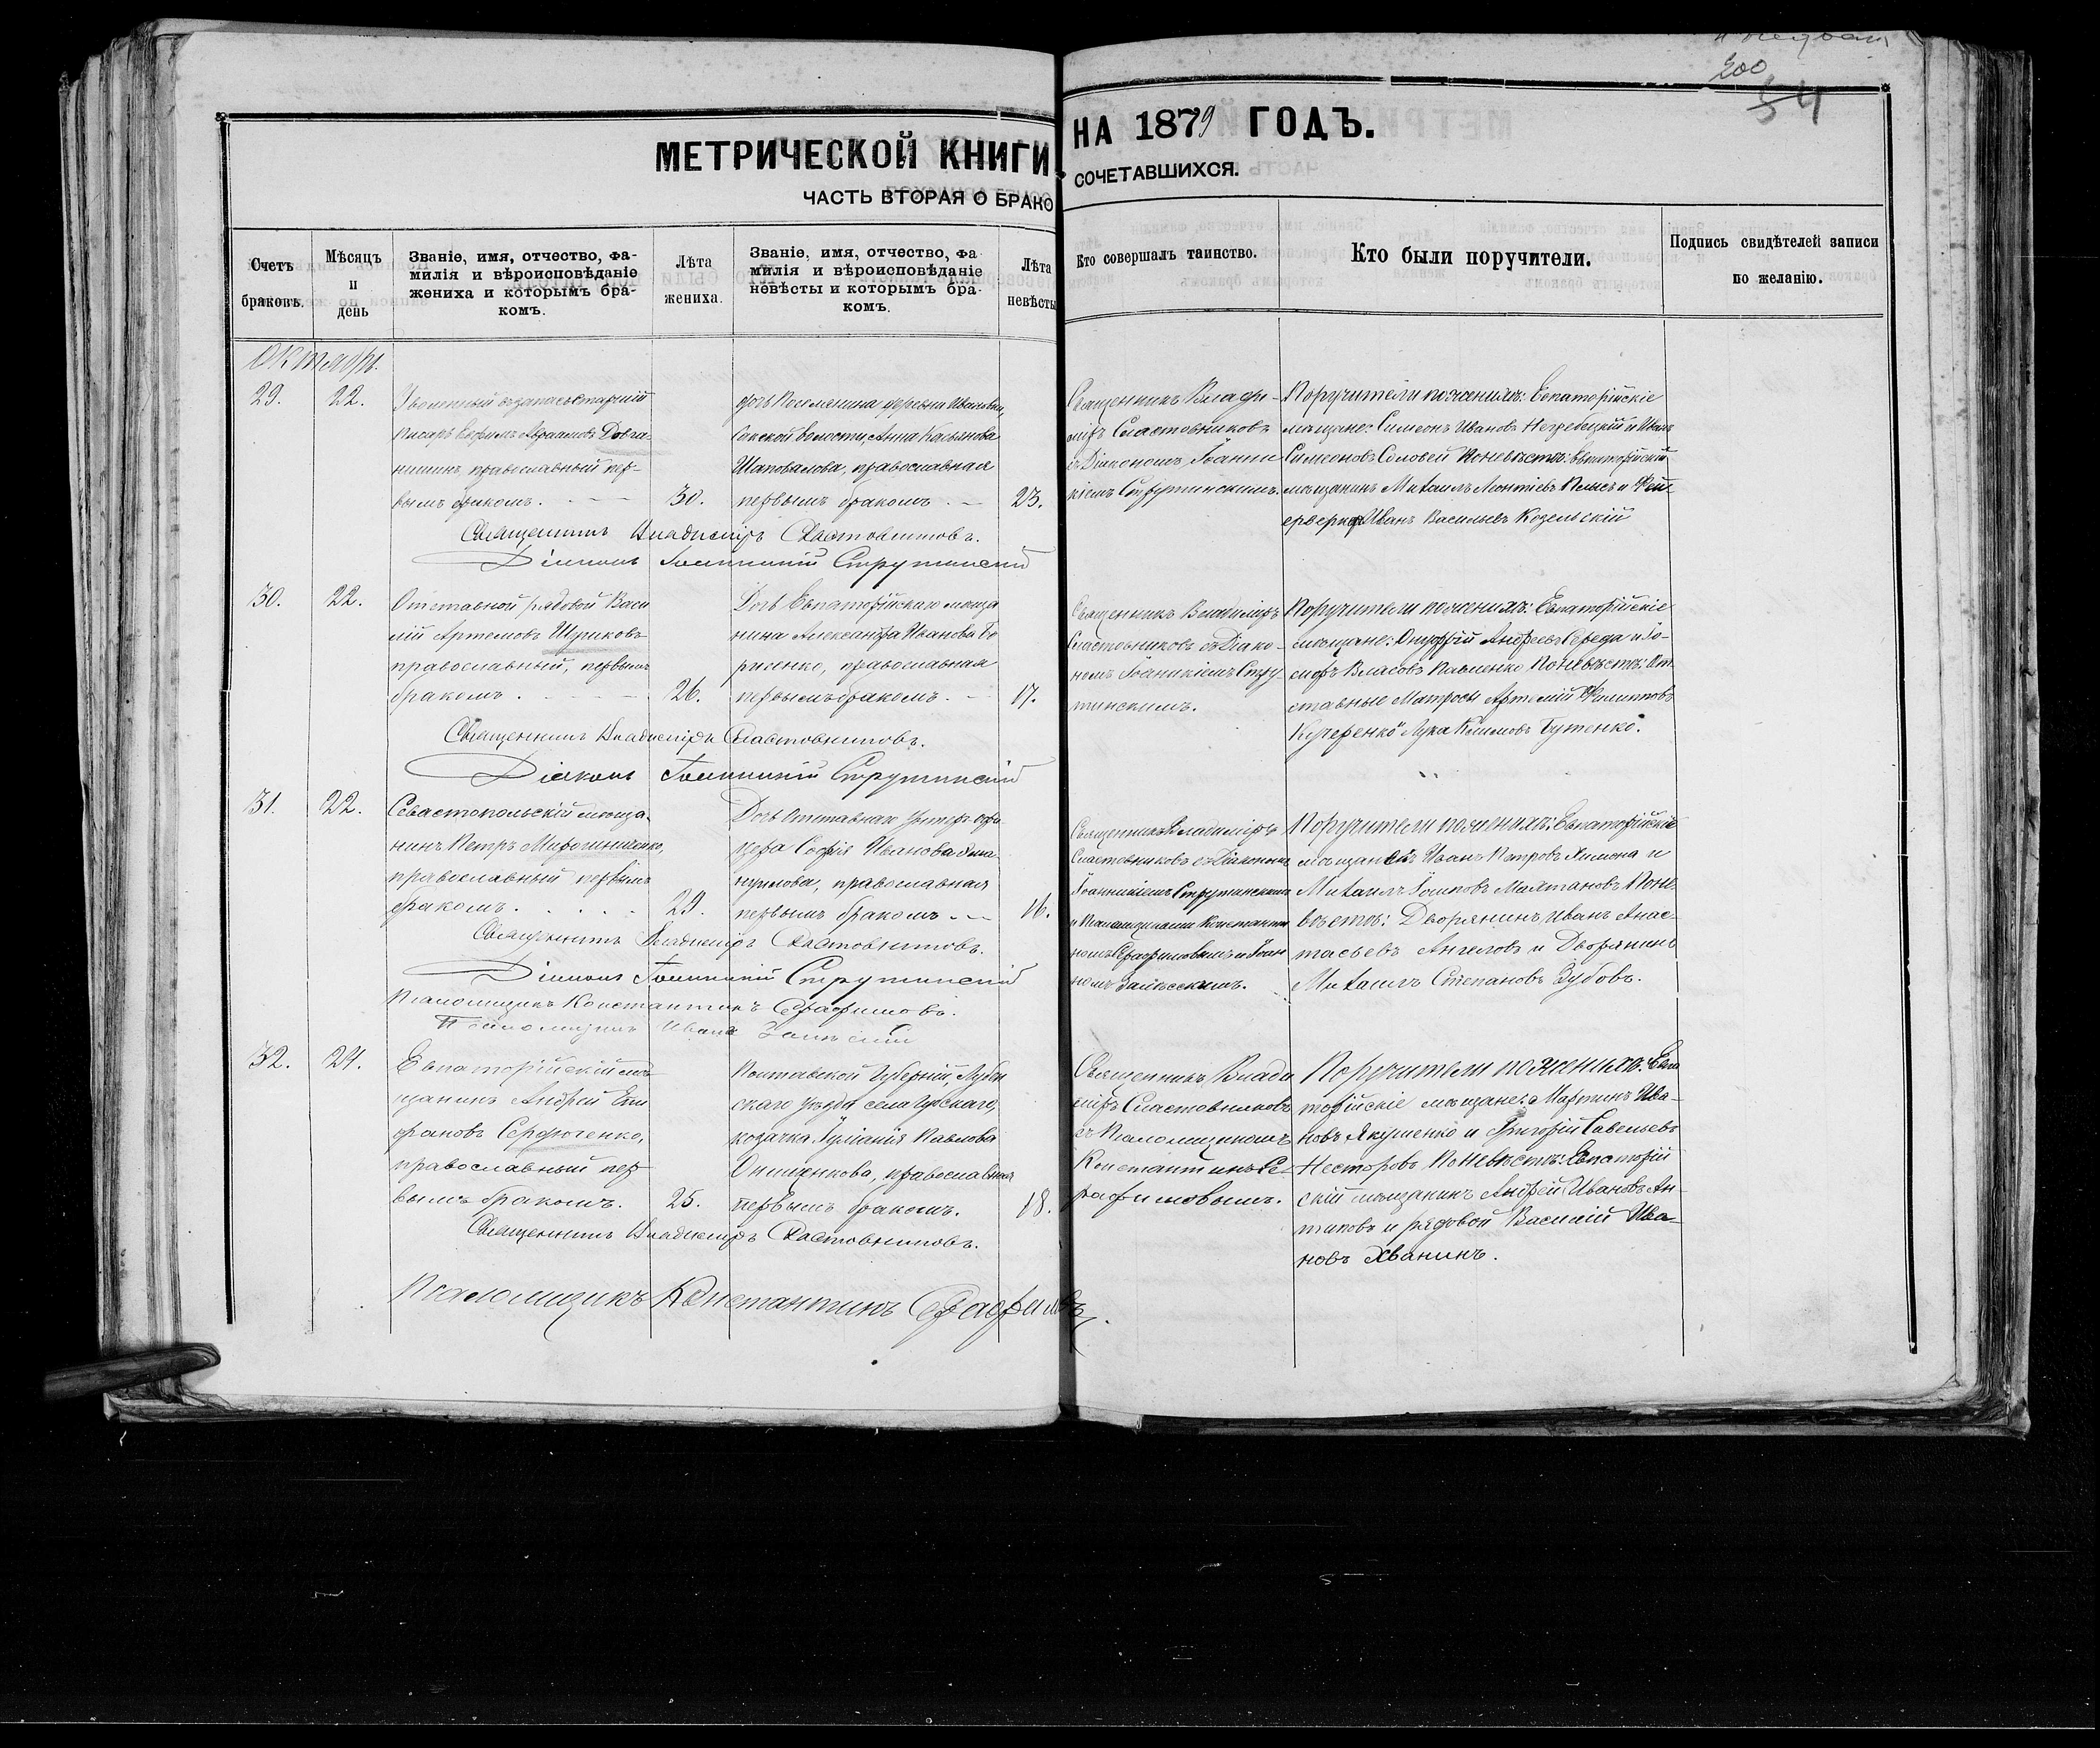 200
54
МЕТРИЧЕСКОЙ КНИГИ НА 1879 ГОДЪ.
ЧАСТЬ ВТОРАЯ О БРАКОСОЧЕТАВШИХСЯ.
Счетъ браковъ.
Мѣсяцъ и день
Званіе, имя, отчество, фа-
милія и вѣроисповѣданіе
жениха и которымъ бра-
комъ.
Лѣта жениха.
Званіе, имя, отчество, фа
милія и вѣроисповѣданіе
невѣсты и которымъ бра-
комъ.
Лѣта невѣсты
Кто совершалъ таинство.
Кто были поручители.
Подпись свидѣтелей записи
по желанію.
Октябрь.
29.
22.
Уволенный въ запасъ старшій
писарь Авраамовъ Довга-
нинъ православный пер-
вымъ бракомъ.
30.
дочь Поселянина деревни
волости, Анна
Шаповалова, православная
первымъ бракомъ
23.
Священникъ Влади-
міръ Сластовниковъ
съ Діакономъ Іоанни-
кіемъ Струтинскимъ.
Поручители по женихѣ: Евпаторійскіе
мѣщане: Симеонъ Ивановъ и Иванъ
Симеоновъ Соловей По невѣстѣ: Евпаторійскій
мѣщанинъ Михаилъ Леонтіевъ и Фей-
ерверкеръ Иванъ Васильевъ Козельскій
Священникъ Владиміръ Сластовниковъ.
Діаконъ Іоанникій Струтинскій
30.
22.
Отставной рядовой Васи
лій Артемовъ Шуриковъ
православный, первымъ
бракомъ.
26.
Дочь Евпаторійскаго мѣща
нина Александра Иванова Бо
рисенко, православная
первымъ бракомъ.
17.
Священникъ Владиміръ
Сластовниковъ съ Діако-
номъ Іоанникіемъ Стру-
тинскимъ.
Поручители по женихѣ: Евпаторійскіе
мѣщане: Онуфрій Андреевъ Середа и Іо-
сифъ Власовъ Павленко По невѣстѣ: От
ставные Матросы Артемій Филиповъ
Кучеренко и Лука Климовъ Бутенко.
Священникъ Владиміръ Сластовниковъ.
Діаконъ Іоанникій Струтинскій
31.
22.
Севастопольскій мѣща-
нинъ Петръ Мирошниченко,
православный первымъ
бракомъ.
29.
Дочь Отставнаго Унтеръ-офи
цера Софія Иванова
православная
первымъ бракомъ
16.
Священникъ Владиміръ
Сластовниковъ съ Діакономъ
Іоанникіемъ Струтинскимъ
и Псаломщиками Константи
номъ Серафимовымъ и Іоан
номъ Залѣсскимъ.
Поручители по женихѣ: Евпаторійскіе
мѣщане Иванъ Петровъ и
Михаилъ По не-
вѣстѣ: Дворянинъ Иванъ Анас-
тасьевъ Ангеловъ и Дворянинъ
Михаилъ Степановъ Зубовъ.
Священникъ Владиміръ Сластовниковъ.
Діаконъ Іоанникій Струтинскій
Псаломщикъ Константинъ Серафимовъ.
Псаломщикъ Иванъ Залѣскій
32.
24.
Евпаторійскій мѣ
щанинъ Андрей Епи
фановъ Сердюченко,
православный пер
вымъ бракомъ.
25.
Полтавской Губерніи, Лубен
скаго уѣзда села
козачка Іуліанія Павлова
Онищенкова, православная
первымъ бракомъ.
18.
Священникъ Влади
міръ Сластовниковъ
съ Псаломщикомъ
Константинъ Се-
рафимовымъ.
Поручители по женихѣ: Евпа
торійскіе мѣщане: Мартинъ Ива-
новъ Якушенко и Григорій Савельевъ
Несторовъ По невѣстѣ: Евпаторій
скій мѣщанинъ Андрей Ивановъ Ан-
типовъ и рядовой Василій Ива-
новъ Хванинъ.
Священникъ Владиміръ Сластовниковъ.
Псаломщикъ Константинъ Серафимовъ.